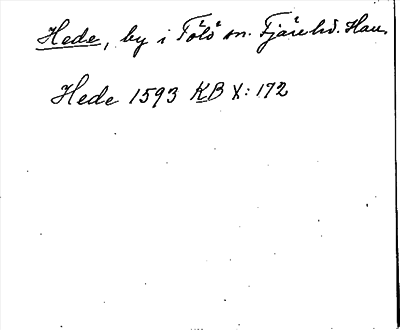 Hede, by i Fölö sn. Fjäre hd. Han.
Hede 1593 KB X: 172